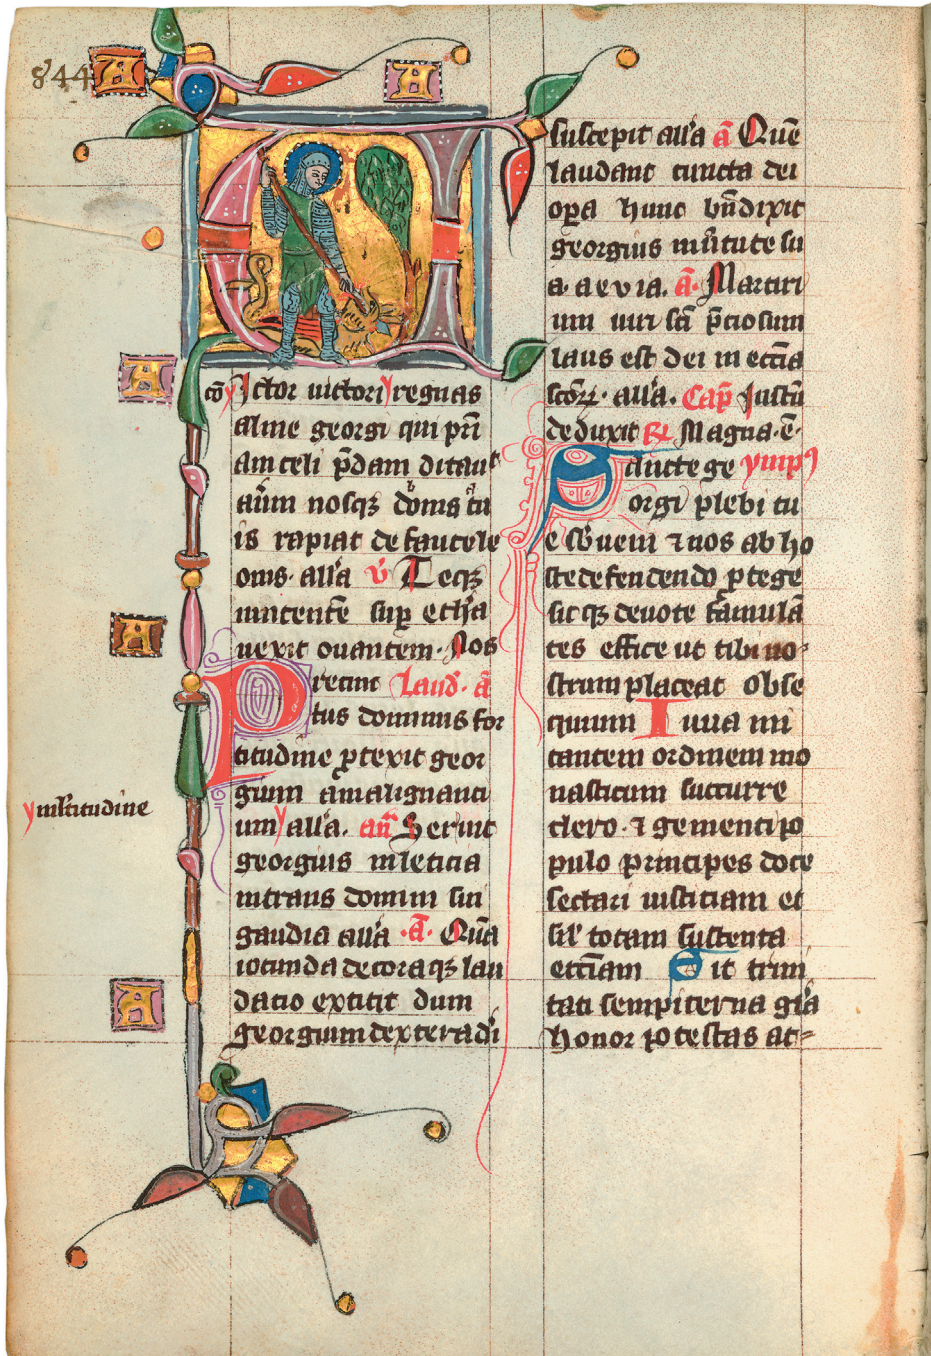 844
A
A
A
cō Ictor uictori regnas
alme georgi qui pr̄i
am celi p̄dam ditaut
aūm nosqꝫ dom̄s tu
is rapiat de fauce le
onis· all'a v̄ Teqꝫ
uincente sup eth'a
uexit ouantem· Nos
A
Precinc Laud· ā
tus dominus for
titudine ꝓtexit geor
gium a malignanci
um all'a. an̄ Seruit
ymltitudine
georgius in leticia
intrans domini sui
gaudia all'a ·ā· Qūa
iocunda decoraqꝫ lau
datio extitit dum
A
georgium dextera di
suscepit all'a ā Quē
laudant cuncta dei
oꝑa hunc bn̄dixit
georgius in
a· a e v i a. ā· Martiri
um uiri sc̄i p̄ciosum
laus est dei in ecc̄ia
sc̄oꝝ· all'a. Cap̄ Justū
deduxit R̄ Magna·ē·
Sancte ge ymp9
orgi plebi tu
e sb̄ueni ⁊ nos ab ho
ste defendendo ꝓtege
sicqꝫ deuote famulā
tes effice ut tibi no-
strum placeat obse
quium Iuua mi
tantem ordinem mo
nasticum succurre
clero· ⁊ gementi po
pulo principes doce
sectari iusticiam et
sil' totam sustenta
ecc̄iam Sit trini
tati sempiterna gl'a
honor potestas at-